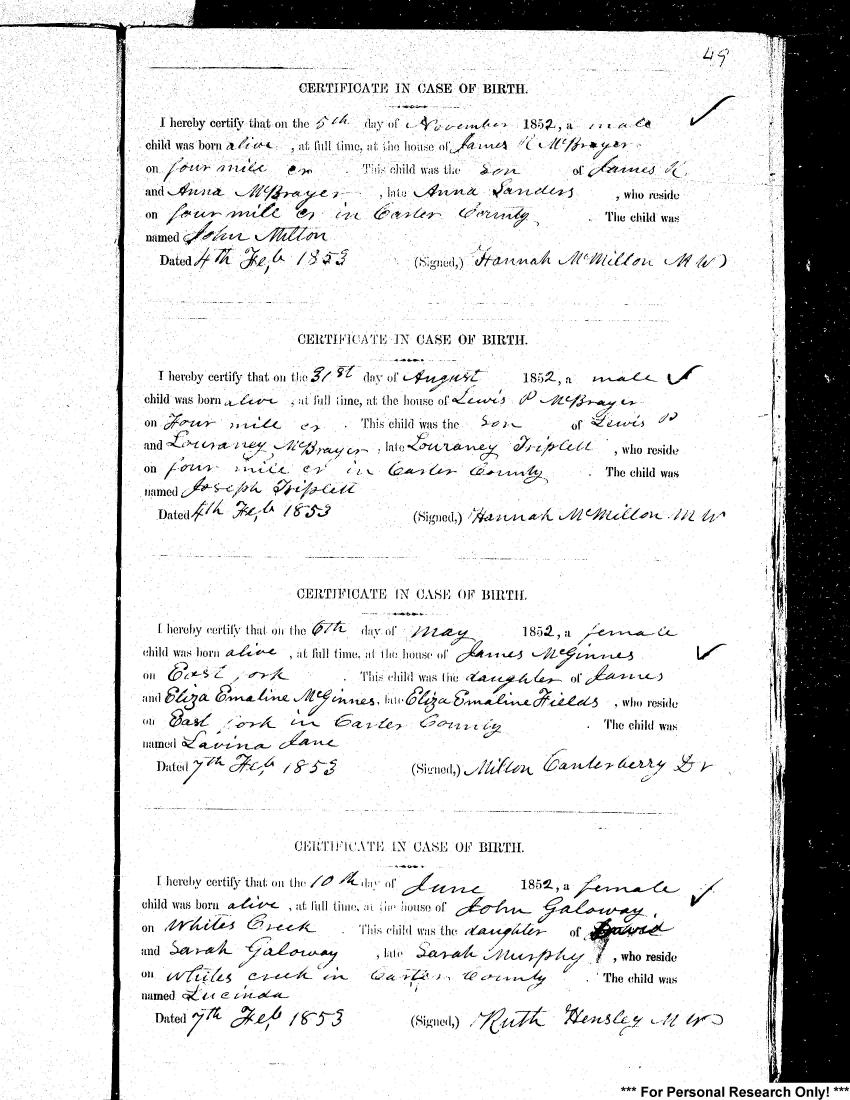 49
CERTIFICATE IN CASE OF BIRTH.
I hereby certify that on the 5th day of November 1852, a male
child was born alive, at full time, at the house of James R McBrayer
on four mile cr. This child was the son of James R.
and Anna McBrayer, late Anna Sanders, who reside
on four mile cr in Carter County. The child was
named John Milton
Dated 4th Feb, 1853 (Signed,) Hannah McMillon M W)
CERTIFICATE IN CASE OF BIRTH.
I hereby certify that on the 31st day of August 1852, a male
child was born alive, at full time, at the house of Lewis P McBrayer
on Four mile cr. This child was the son of Lewis P
and Louraney McBrayer, late Louraney Triplett, who reside
on four mile cr in Carter County. The child was
named Joseph Triplett
Dated 4th Feb, 1853 (Signed,) Hannah McMillon M W
CERTIFICATE IN CASE OF BIRTH.
I hereby certify that on the 6th day of May 1852, a female
child was born alive, at full time, at the house of James McGinnes
on East fork. This child was the daughter of James
and Eliza Emaline McGinnes, late Eliza Emaline Fields, who reside
on East fork in Carter County. The child was
named Lavina Jane
Dated 7th Feb, 1853 (Signed,) Milton Canterberry Dr
CERTIFICATE IN CASE OF BIRTH.
I hereby certify that on the 10th day of June 1852, a female
child was born alive, at full time, at the house of John Galoway.
on Whites Creek. This child was the daughter of
and Sarah Galoway, late Sarah Murphy, who reside
on Whites creek in Carter County. The child was
named Lucinda
Dated 7th Feb, 1853 (Signed,) Ruth Hensley M W
*** For Personal Research Only! ***